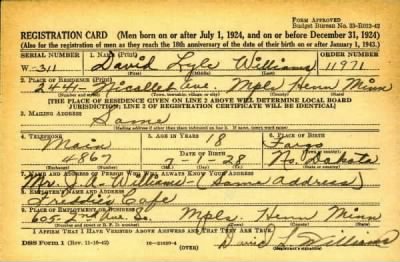 FORM APPROVED
Budget Bureau No. 33-R012-42
REGISTRATION CARD (Men born on or after July 1, 1924, and on or before December 31, 1924)
(Also for the registration of men as they reach the 18th anniversary of the date of their birth on or after January 1, 1943.)
SERIAL NUMBER 1. NAME (Print) ORDER NUMBER
W-311 David Lyle Williams 11971
2. PLACE OF RESIDENCE (Print)
2441- Nicollet Ave. Mpls Henn Minn
(Number and street) (Town, township, village, or city) (County) (State)
[THE PLACE OF RESIDENCE GIVEN ON LINE 2 ABOVE WILL DETERMINE LOCAL BOARD
JURISDICTION; LINE 2 OF REGISTRATION CERTIFICATE WILL BE IDENTICAL]
3. MAILING ADDRESS
Same
[Mailing address if other than place indicated on line 2. If same, insert word same]
4. TELEPHONE 5. AGE IN YEARS 6. PLACE OF BIRTH
Main 18 Fargo
4867 28 No. Dakota
7. NAME AND ADDRESS OF PERSON WHO WILL ALWAYS KNOW YOUR ADDRESS
Williams - (Same Address)
8. EMPLOYER'S NAME AND ADDRESS
Freddies Cafe
9. PLACE OF EMPLOYMENT OR BUSINESS
605-2nd Ave. So. Mpls. Henn Minn
I AFFIRM THAT I HAVE VERIFIED ABOVE ANSWERS AND THAT THEY ARE TRUE.
DSS Form 1 (Rev. 11-16-42) (OVER) David L. Williams